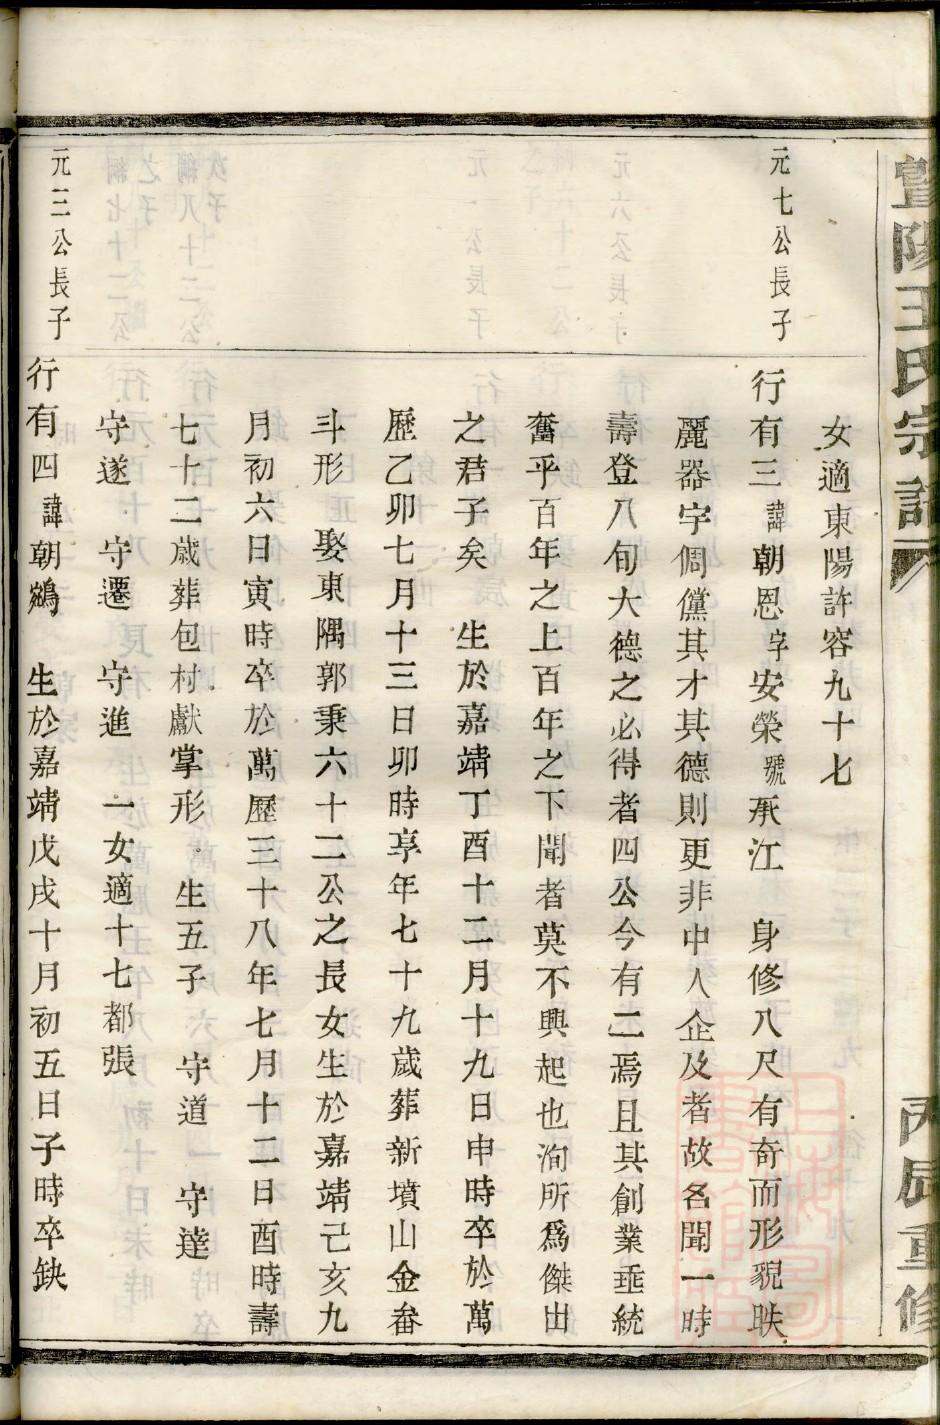 暨陽王氏宗譜
丙辰重修
女適東陽許容九十七
元七公長子
行有三諱朝恩字安榮號承江 身修八尺有奇而形貌昳
麗器宇倜儻其才其德則更非中人企及者故名聞一時
壽登八旬大德之必得者四公今有二焉且其創業垂統
奮乎百年之上百年之下聞者莫不興起也洵所為傑出
之君子矣 生於嘉靖丁酉十二月十九日申時卒於萬
歷乙卯七月十三日卯時享年七十九歲葬新墳山金畚
斗形 娶東隅郭秉六十二公之長女生於嘉靖己亥九
月初六日寅時卒於萬歷三十八年七月十二日酉時壽
七十二歲葬包村獻掌形 生五子 守道 守達
守遂 守遷 守進 一女適十七都張
元三公長子
行有四諱朝鷀 生於嘉靖戊戌十月初五日子時卒缺